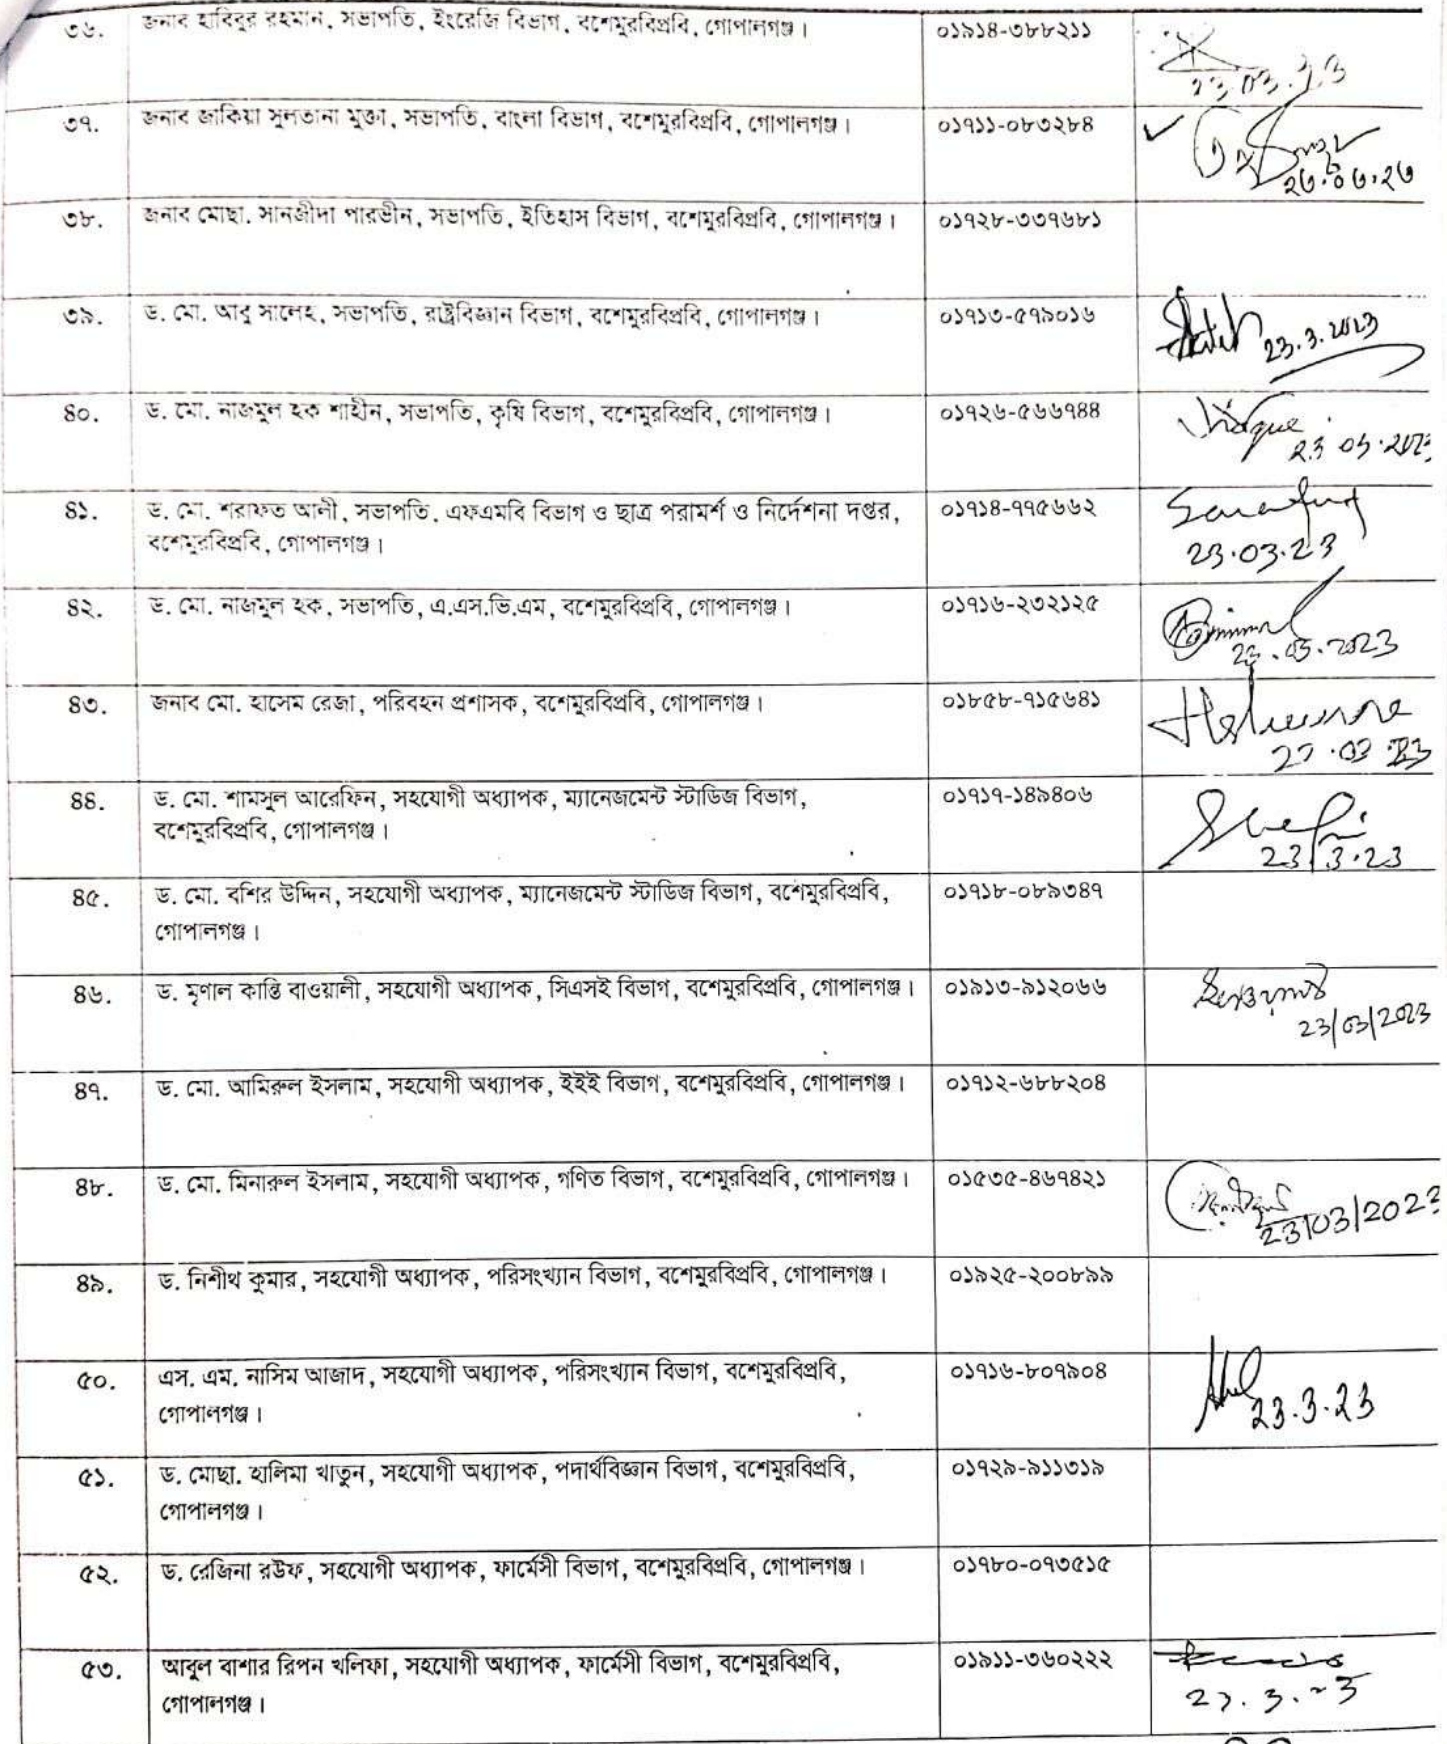 ৩৬. জনাব হাবিবুর রহমান, সভাপতি, ইংরেজি বিভাগ, বশেমুরবিপ্রবি, গোপালগঞ্জ। ০১৯১৪-৩৮৮২১১
23.03.23
৩৭. জনাব জাকিয়া সুলতানা মুক্তা, সভাপতি, বাংলা বিভাগ, বশেমুরবিপ্রবি, গোপালগঞ্জ। ০১৭১১-০৮৩২৮৪
২৩.০৩.২৩
৩৮. জনাব মোছা. সানজীদা পারভীন, সভাপতি, ইতিহাস বিভাগ, বশেমুরবিপ্রবি, গোপালগঞ্জ। ০১৭২৮-৩৩৭৬৮১
৩৯. ড. মো. আবু সালেহ, সভাপতি, রাষ্ট্রবিজ্ঞান বিভাগ, বশেমুরবিপ্রবি, গোপালগঞ্জ। ০১৭১৩-৫৭৯০১৬
23.3.2023
৪০. ড. মো. নাজমুল হক শাহীন, সভাপতি, কৃষি বিভাগ, বশেমুরবিপ্রবি, গোপালগঞ্জ। ০১৭২৬-৫৬৬৭৪৪
23.03.2023
৪১. ড. মো. শরাফত আলী, সভাপতি, এফএমবি বিভাগ ও ছাত্র পরামর্শ ও নির্দেশনা দপ্তর, ০১৭১৪-৭৭৫৬৬২
বশেমুরবিপ্রবি, গোপালগঞ্জ।
23.03.23
৪২. ড. মো. নাজমুল হক, সভাপতি, এ.এস.ভি.এম, বশেমুরবিপ্রবি, গোপালগঞ্জ। ০১৭১৬-২৩২১২৫
23.03.2023
৪৩. জনাব মো. হাসেম রেজা, পরিবহন প্রশাসক, বশেমুরবিপ্রবি, গোপালগঞ্জ। ০১৮৫৮-৭১৫৬৪১
23.03.23
৪৪. ড. মো. শামসুল আরেফিন, সহযোগী অধ্যাপক, ম্যানেজমেন্ট স্টাডিজ বিভাগ, ০১৭১৭-১৪৯৪০৬
বশেমুরবিপ্রবি, গোপালগঞ্জ।
23/3.23
৪৫. ড. মো. বশির উদ্দিন, সহযোগী অধ্যাপক, ম্যানেজমেন্ট স্টাডিজ বিভাগ, বশেমুরবিপ্রবি, ০১৭১৮-০৮৯৩৪৭
গোপালগঞ্জ।
৪৬. ড. মৃণাল কান্তি বাওয়ালী, সহযোগী অধ্যাপক, সিএসই বিভাগ, বশেমুরবিপ্রবি, গোপালগঞ্জ। ০১৯১৩-৯১২০৬৬
23/03/2023
৪৭. ড. মো. আমিরুল ইসলাম, সহযোগী অধ্যাপক, ইইই বিভাগ, বশেমুরবিপ্রবি, গোপালগঞ্জ। ০১৭১২-৬৮৮২০৪
৪৮. ড. মো. মিনারুল ইসলাম, সহযোগী অধ্যাপক, গণিত বিভাগ, বশেমুরবিপ্রবি, গোপালগঞ্জ। ০১৫৩৫-৪৬৭৪২১
23/03/2023
৪৯. ড. নিশীথ কুমার, সহযোগী অধ্যাপক, পরিসংখ্যান বিভাগ, বশেমুরবিপ্রবি, গোপালগঞ্জ। ০১৯২৫-২০০৮৯৯
৫০. এস. এম. নাসিম আজাদ, সহযোগী অধ্যাপক, পরিসংখ্যান বিভাগ, বশেমুরবিপ্রবি, ০১৭১৬-৮০৭৯০৪
গোপালগঞ্জ।
23.3.23
৫১. ড. মোছা. হালিমা খাতুন, সহযোগী অধ্যাপক, পদার্থবিজ্ঞান বিভাগ, বশেমুরবিপ্রবি, ০১৭২৯-৯১১৩১৯
গোপালগঞ্জ।
৫২. ড. রেজিনা রউফ, সহযোগী অধ্যাপক, ফার্মেসী বিভাগ, বশেমুরবিপ্রবি, গোপালগঞ্জ। ০১৭৮০-০৭৩৫১৫
৫৩. আবুল বাশার রিপন খলিফা, সহযোগী অধ্যাপক, ফার্মেসী বিভাগ, বশেমুরবিপ্রবি, ০১৯১১-৩৬০২২২
গোপালগঞ্জ।